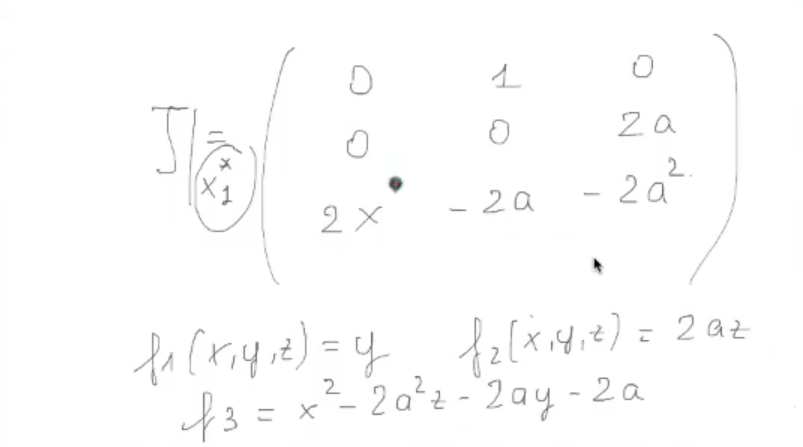 J|x₁* = ( 0 1 0
0 0 2a
2x -2a -2a² )
f₁(x,y,z) = y f₂(x,y,z) = 2az
f₃ = x² - 2a²z - 2ay - 2a